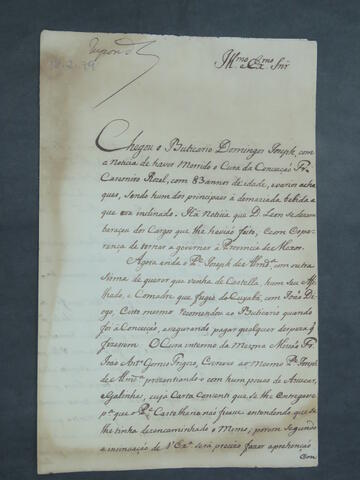 Respond.
Illmo e Exmo Snr
Chegou o Buticario Domingos Joseph, com
a noticia de haver Morrido o Cura da Conceição Fr.
com 83 annos de idade, e varios acha
ques, sendo hum dos principaes a demaziada bebida a
que era inclinado. Há noticia que D. Leon se dezem
baraçou dos Cargos que lhe havião feito, e com espe
rança de tornar a governar á Provincia de Moxos.
Agora anda o Pe. Joseph de Almda. com outra
de querer que venha de Castella, hum seu Afi
lhado, e Comadre que fugio do Cuyabá, com João Dï
ogo. Este mesmo recomendou ao Buticario quando
foi á Conceição, asegurando pagar qualquer despeza q
fizessem. O Cura interno da Mezma Missão Fr.
João Anto. Gomes Trigozo, Escreveo ao Mesmo Pe. Joseph
de Almda. prezentiando-o com huns pouces de Assucar,
e Galinhas, cuja Carta Consenti que se lhe Entregasse
pa. que o Pe. Castelhano não ficasse entendendo que se
lhe tinha desencaminhado o Mimo; porem segundo
a insinuação de V. Exa. será precizo fazer aprehenção
Com